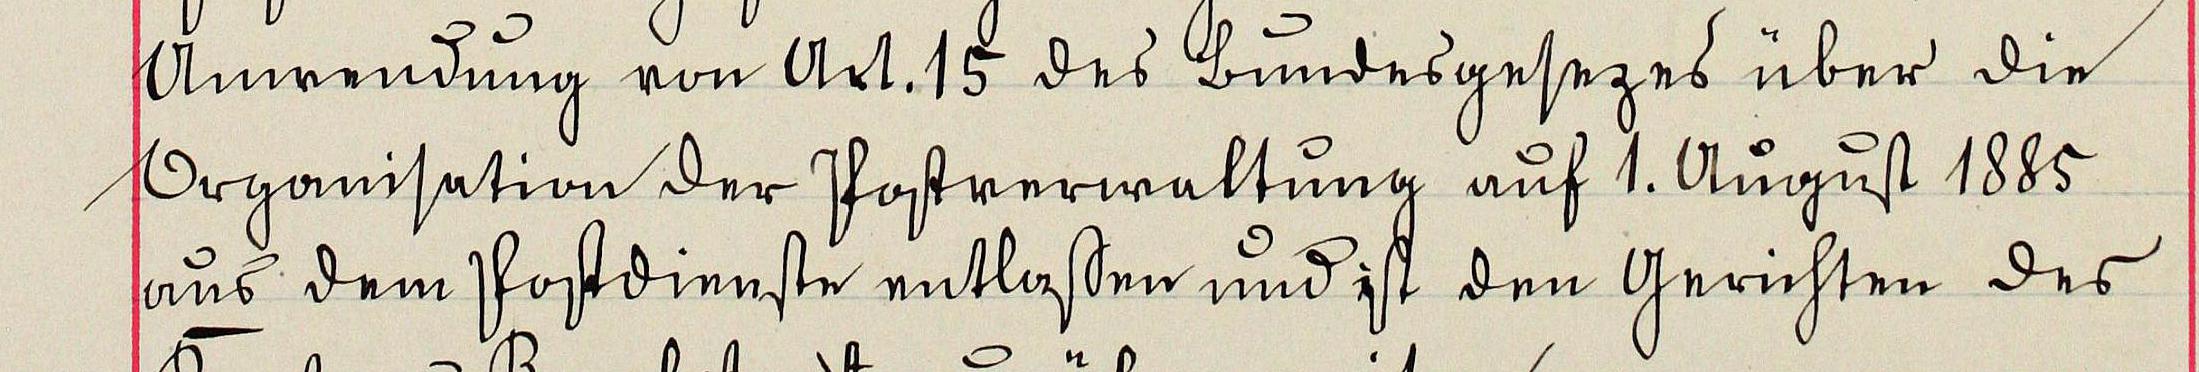 Anwendung von Art. 15 des Bundesgesezes über die
Organisation der Postverwaltung auf 1. August 1885
aus dem Postdienste entlassen und ist den Gerichten des